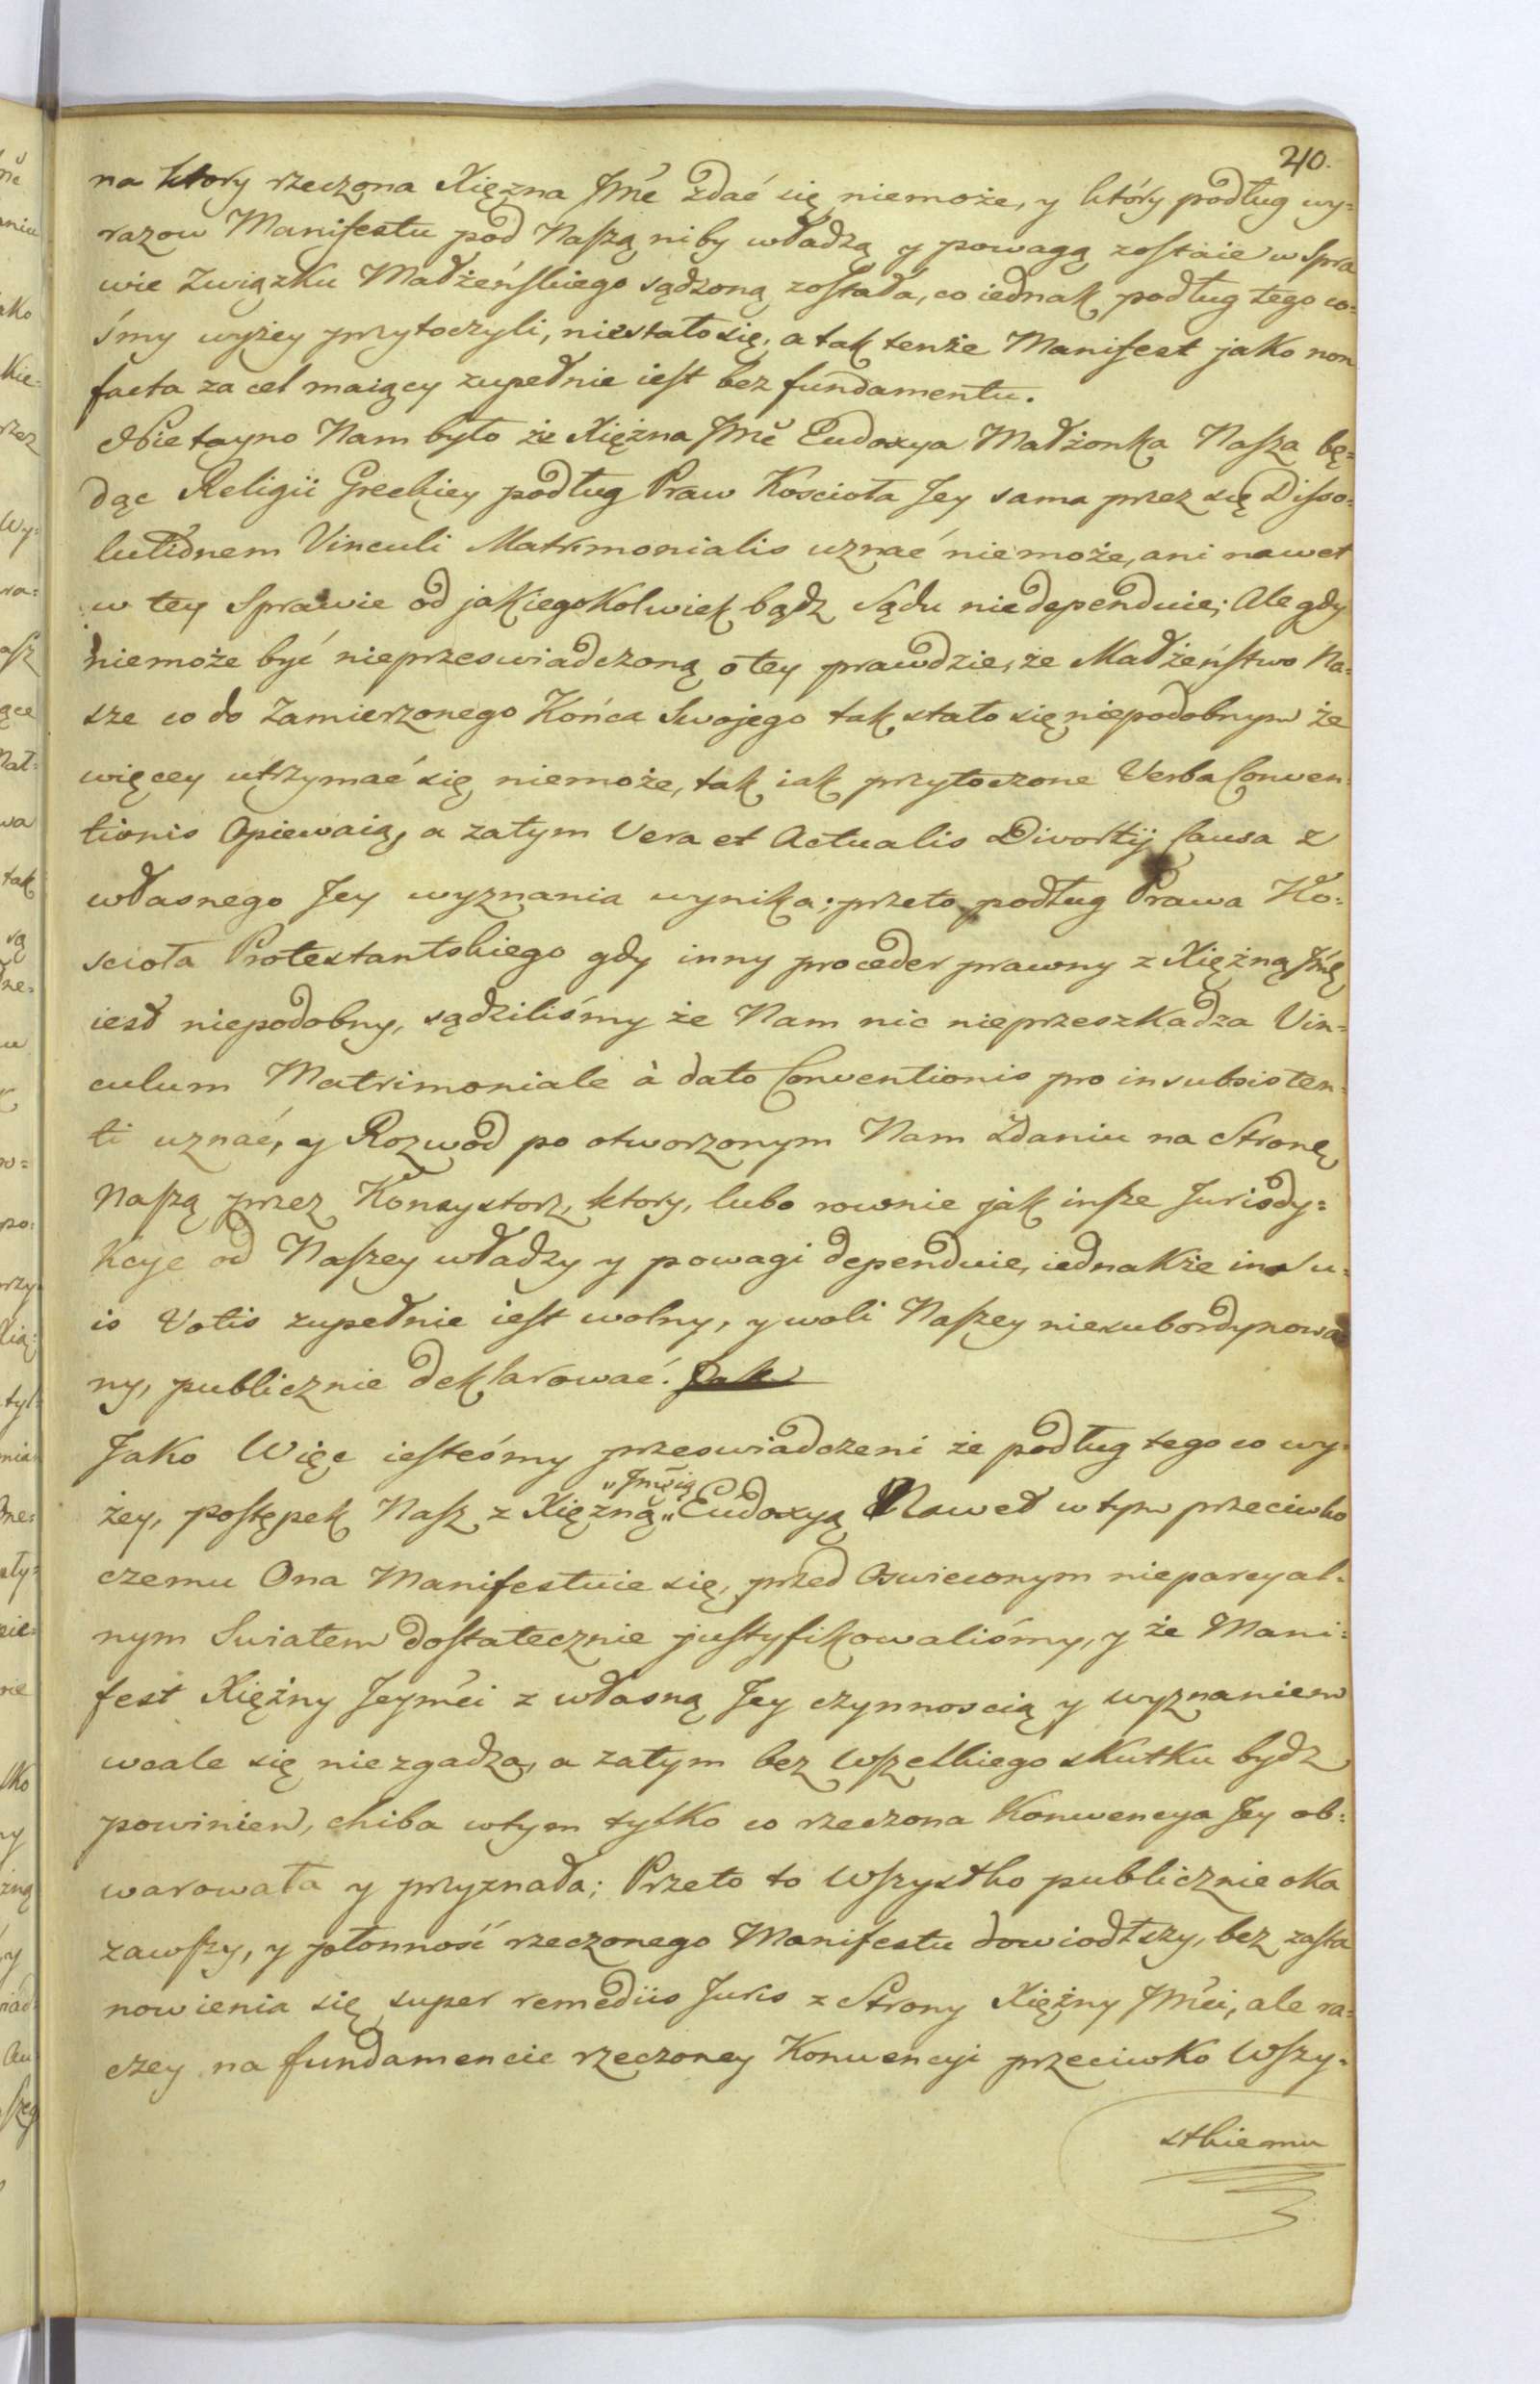 40.
na ktory rzeczona Xięzna Jmć zdać się niemoże, y który podług wy=
razow Manifestu pod Naszą niby władzą y powagą zostaie w Spra
wie Związku Małżeńskiego sądzoną została, co iednak podług tego co=
śmy wyżey przytoczyli, niestało się, a tak tenże Manifest jako non
facta za cel maiący zupełnie iest bez fundamentu.
Nie tayno Nam było że Xiężna Jmć Eudoxya Małżonka Nasza bę=
dąc Religii Greckiey podług Praw Kościoła Jey sama przez się Disso=
lutionem Vinculi Matrimonialis uznać niemoże, ani nawet
w tey Sprawie od jakiegokolwiek bądz Sądu niedependuie; Ale gdy
niemoże być nieprzeswiadczoną o tey prawdzie, że Małżeństwo Na=
sze co do Zamierzonego Końca Swojego tak stało się niepodobnym że
więcey utrzymać się niemoże, tak iak przytoczone Verba Conven=
tionis Opiewaią, a zatym Vera et Actualis Divortij Causa z
własnego Jey wyznania wynika; przeto podług Prawa Ko=
scioła Protestantskiego gdy inny proceder prawny z Xiężną Jmć
iest niepodobny, sądziliśmy że Nam nic nieprzeszkadza Vin=
culum Matrimoniale à dato Conventionis pro insubsisten=
ti uznać, y Rozwod po otworzonym Nam Zdaniu na Stronę
Naszą przez Konsystorz, ktory, lubo rownie jak insze Jurisdy=
kcye od Naszey władzy y powagi dependuie, iednakże in su=
is Votis zupełnie iest wolny, y woli Naszey niesubordynowa
ny, publicznie deklarować. Jak
Jako Więc iesteśmy przeswiadczeni że podług tego co wy=
żey, postępek Nasz z Xiężną „Jmcią„ Eudoxyą Nawet w tym przeciwko
czemu Ona Manifestuie się, przed Oswieconym nieparcyal=
nym Swiatem dostatecznie justyfikowaliśmy, y że Mani=
fest Xiężny Jeymći z własną Jey czynnoscią y wyznaniem
wcale się niezgadza, a zatym bez Wszelkiego skutku bydz
powinien, chiba wtym tylko co rzeczona Konwencya Jey ob=
warowała y przyznała; Przeto to Wszystko publicznie oka
zawszy, y płonność rzeczonego Manifestu dowiodłszy, bez zasta
nowienia się super remediis Juris z Strony Xiężny Jmći, ale ra=
czey na fundamencie rzeczoney Konwencyi przeciwko Wszy=
stkiemu